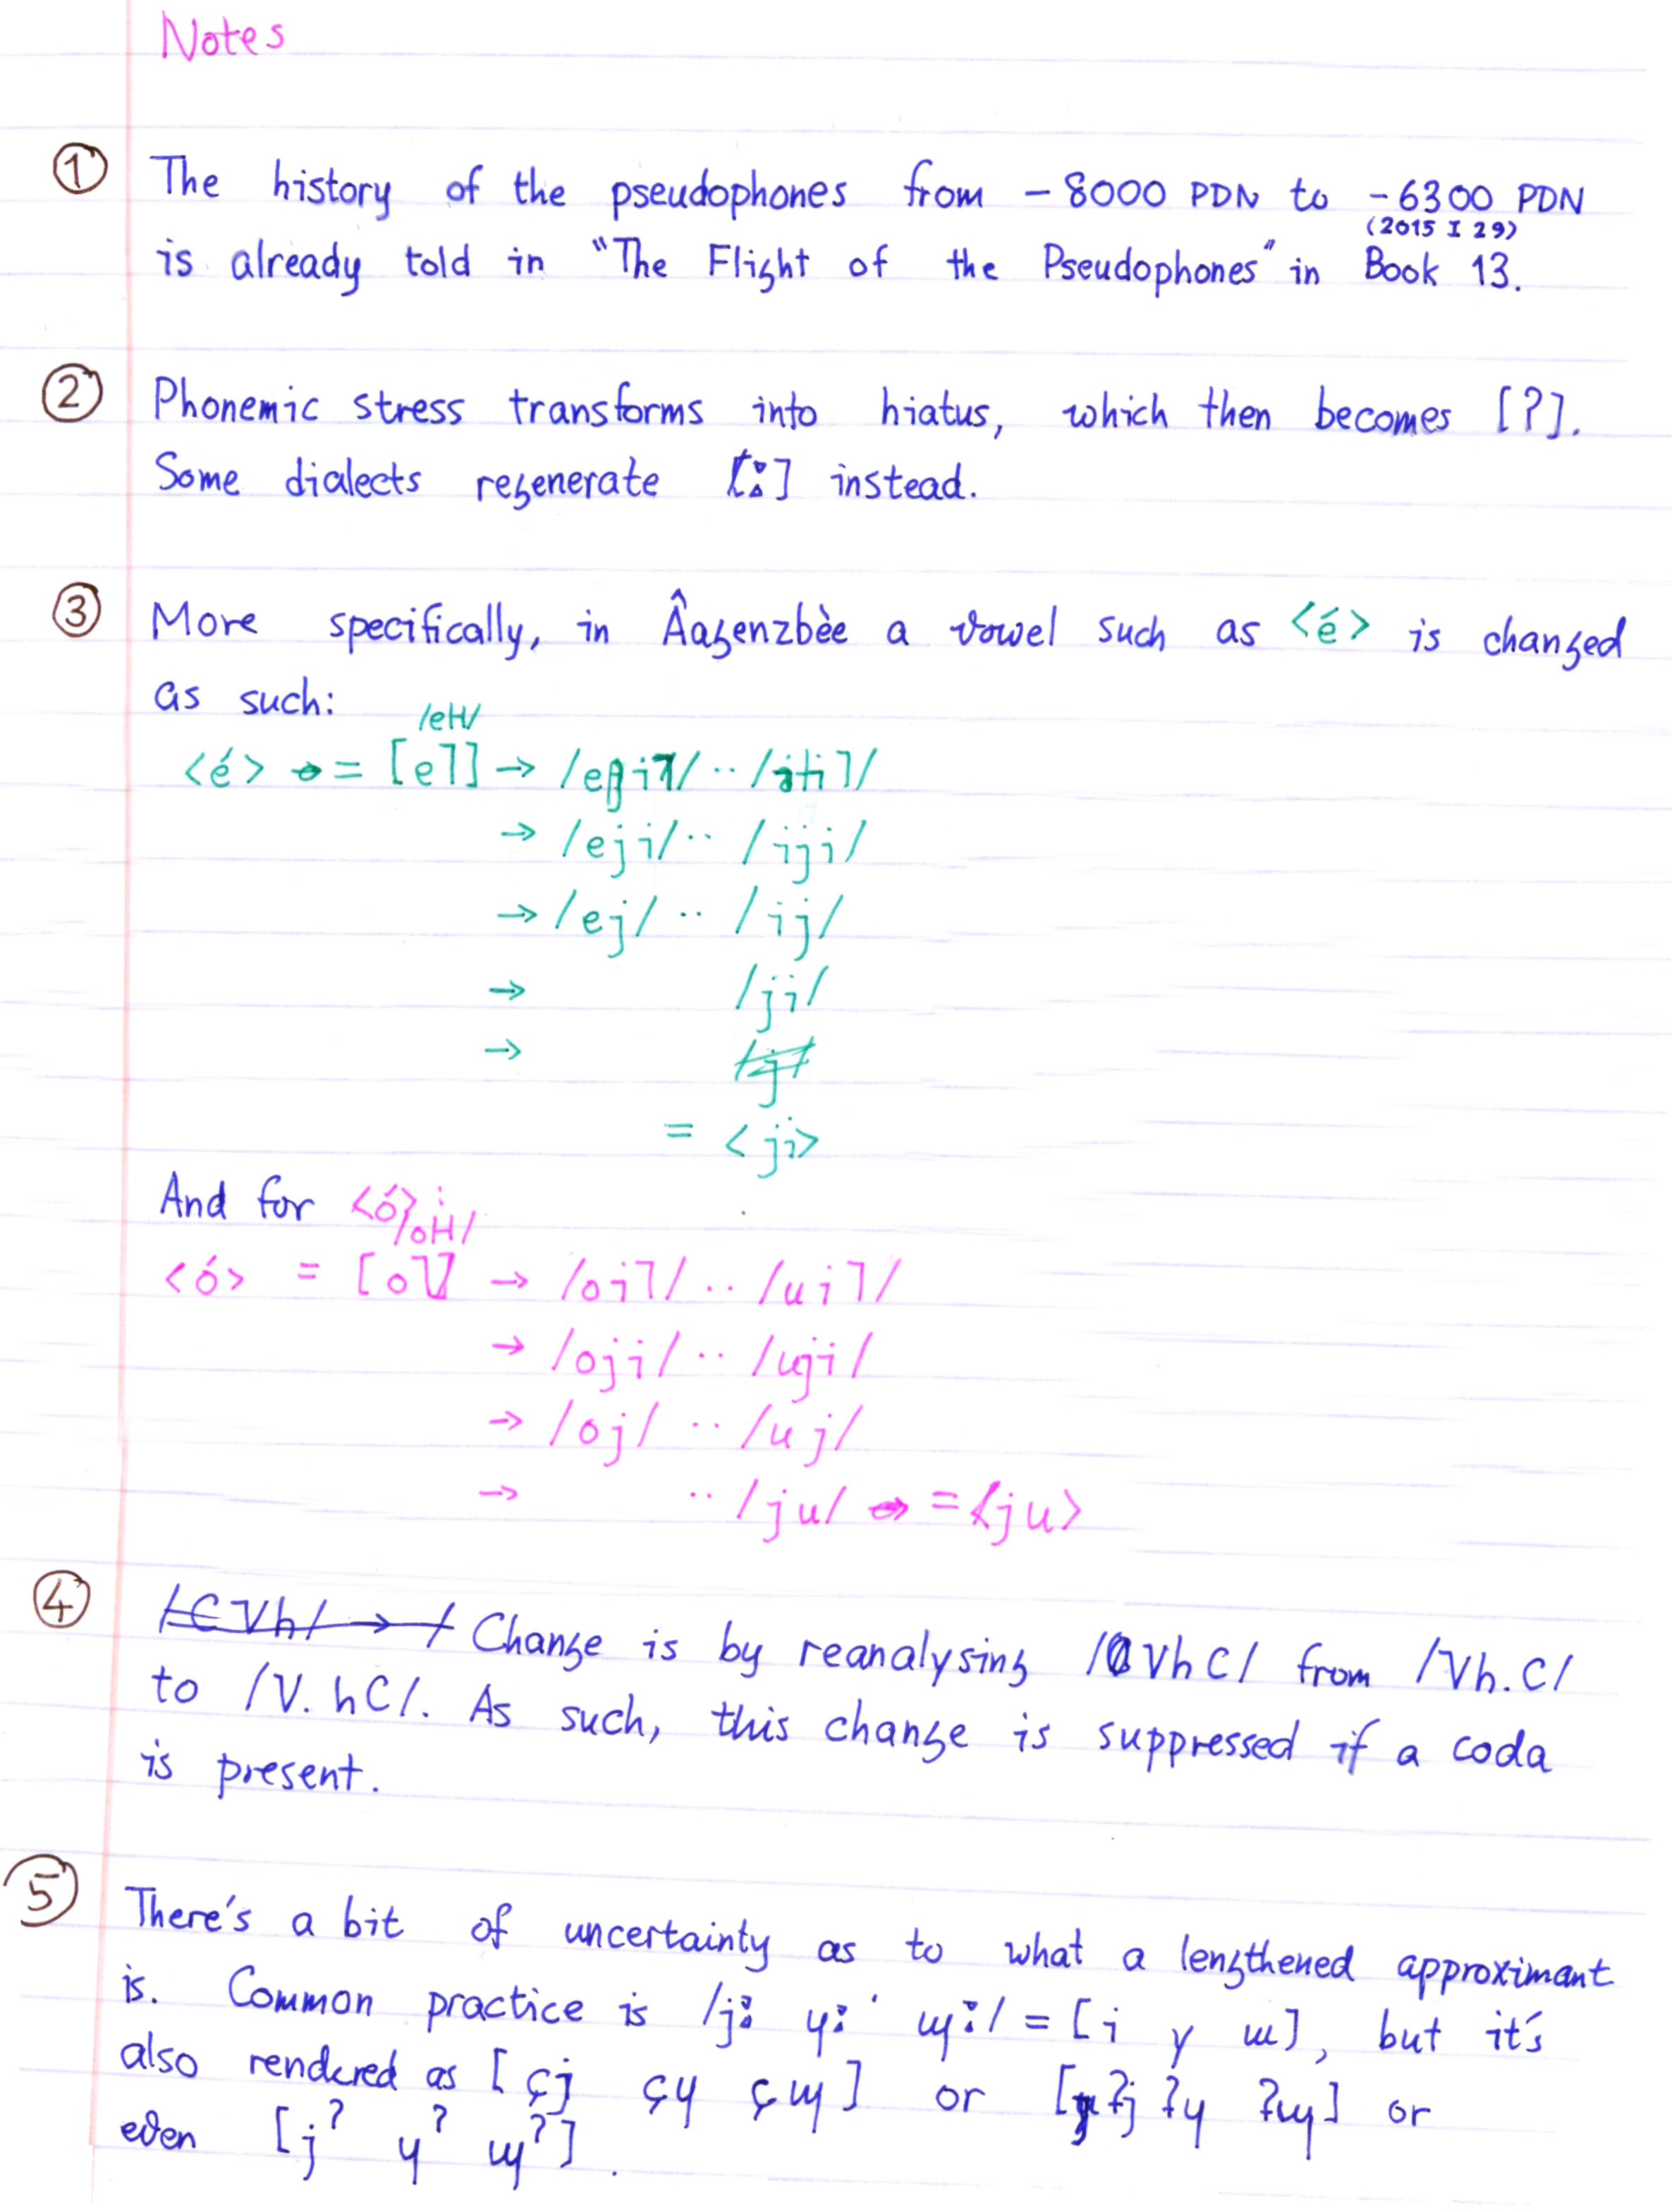 Notes
① The history of the pseudophones from -8000 PDN to -6300 PDN
(2015 I 29)
is already told in "The Flight of the Pseudophones" in Book 13.
② Phonemic stress transforms into hiatus, which then becomes [ʔ].
Some dialects regenerate [ː] instead.
③ More specifically, in Âagenzbèe a vowel such as <é> is changed
as such:
/eH/
<é> = [e˥] → /ei˥/ ·· /i˥/
→ /eji/ ·· /iji/
→ /ej/ ·· /ij/
→ /ji/
→ /j/
= <ji>
And for <ó>:
/oH/
<ó> = [o˥] → /oi˥/ ·· /ui˥/
→ /oji/ ·· /uji/
→ /oj/ ·· /uj/
→ ·· /ju/ = <ju>
④ /CVh/ → / Change is by reanalysing /VhC/ from /Vh.C/
to /V.hC/. As such, this change is suppressed if a coda
is present.
⑤ There's a bit of uncertainty as to what a lengthened approximant
is. Common practice is /jː ɥː ɰː/ = [i y ɯ], but it's
also rendered as [çj çɥ çɰ] or [ʔj ʔɥ ʔɰ] or
even [jˀ ɥˀ ɰˀ].